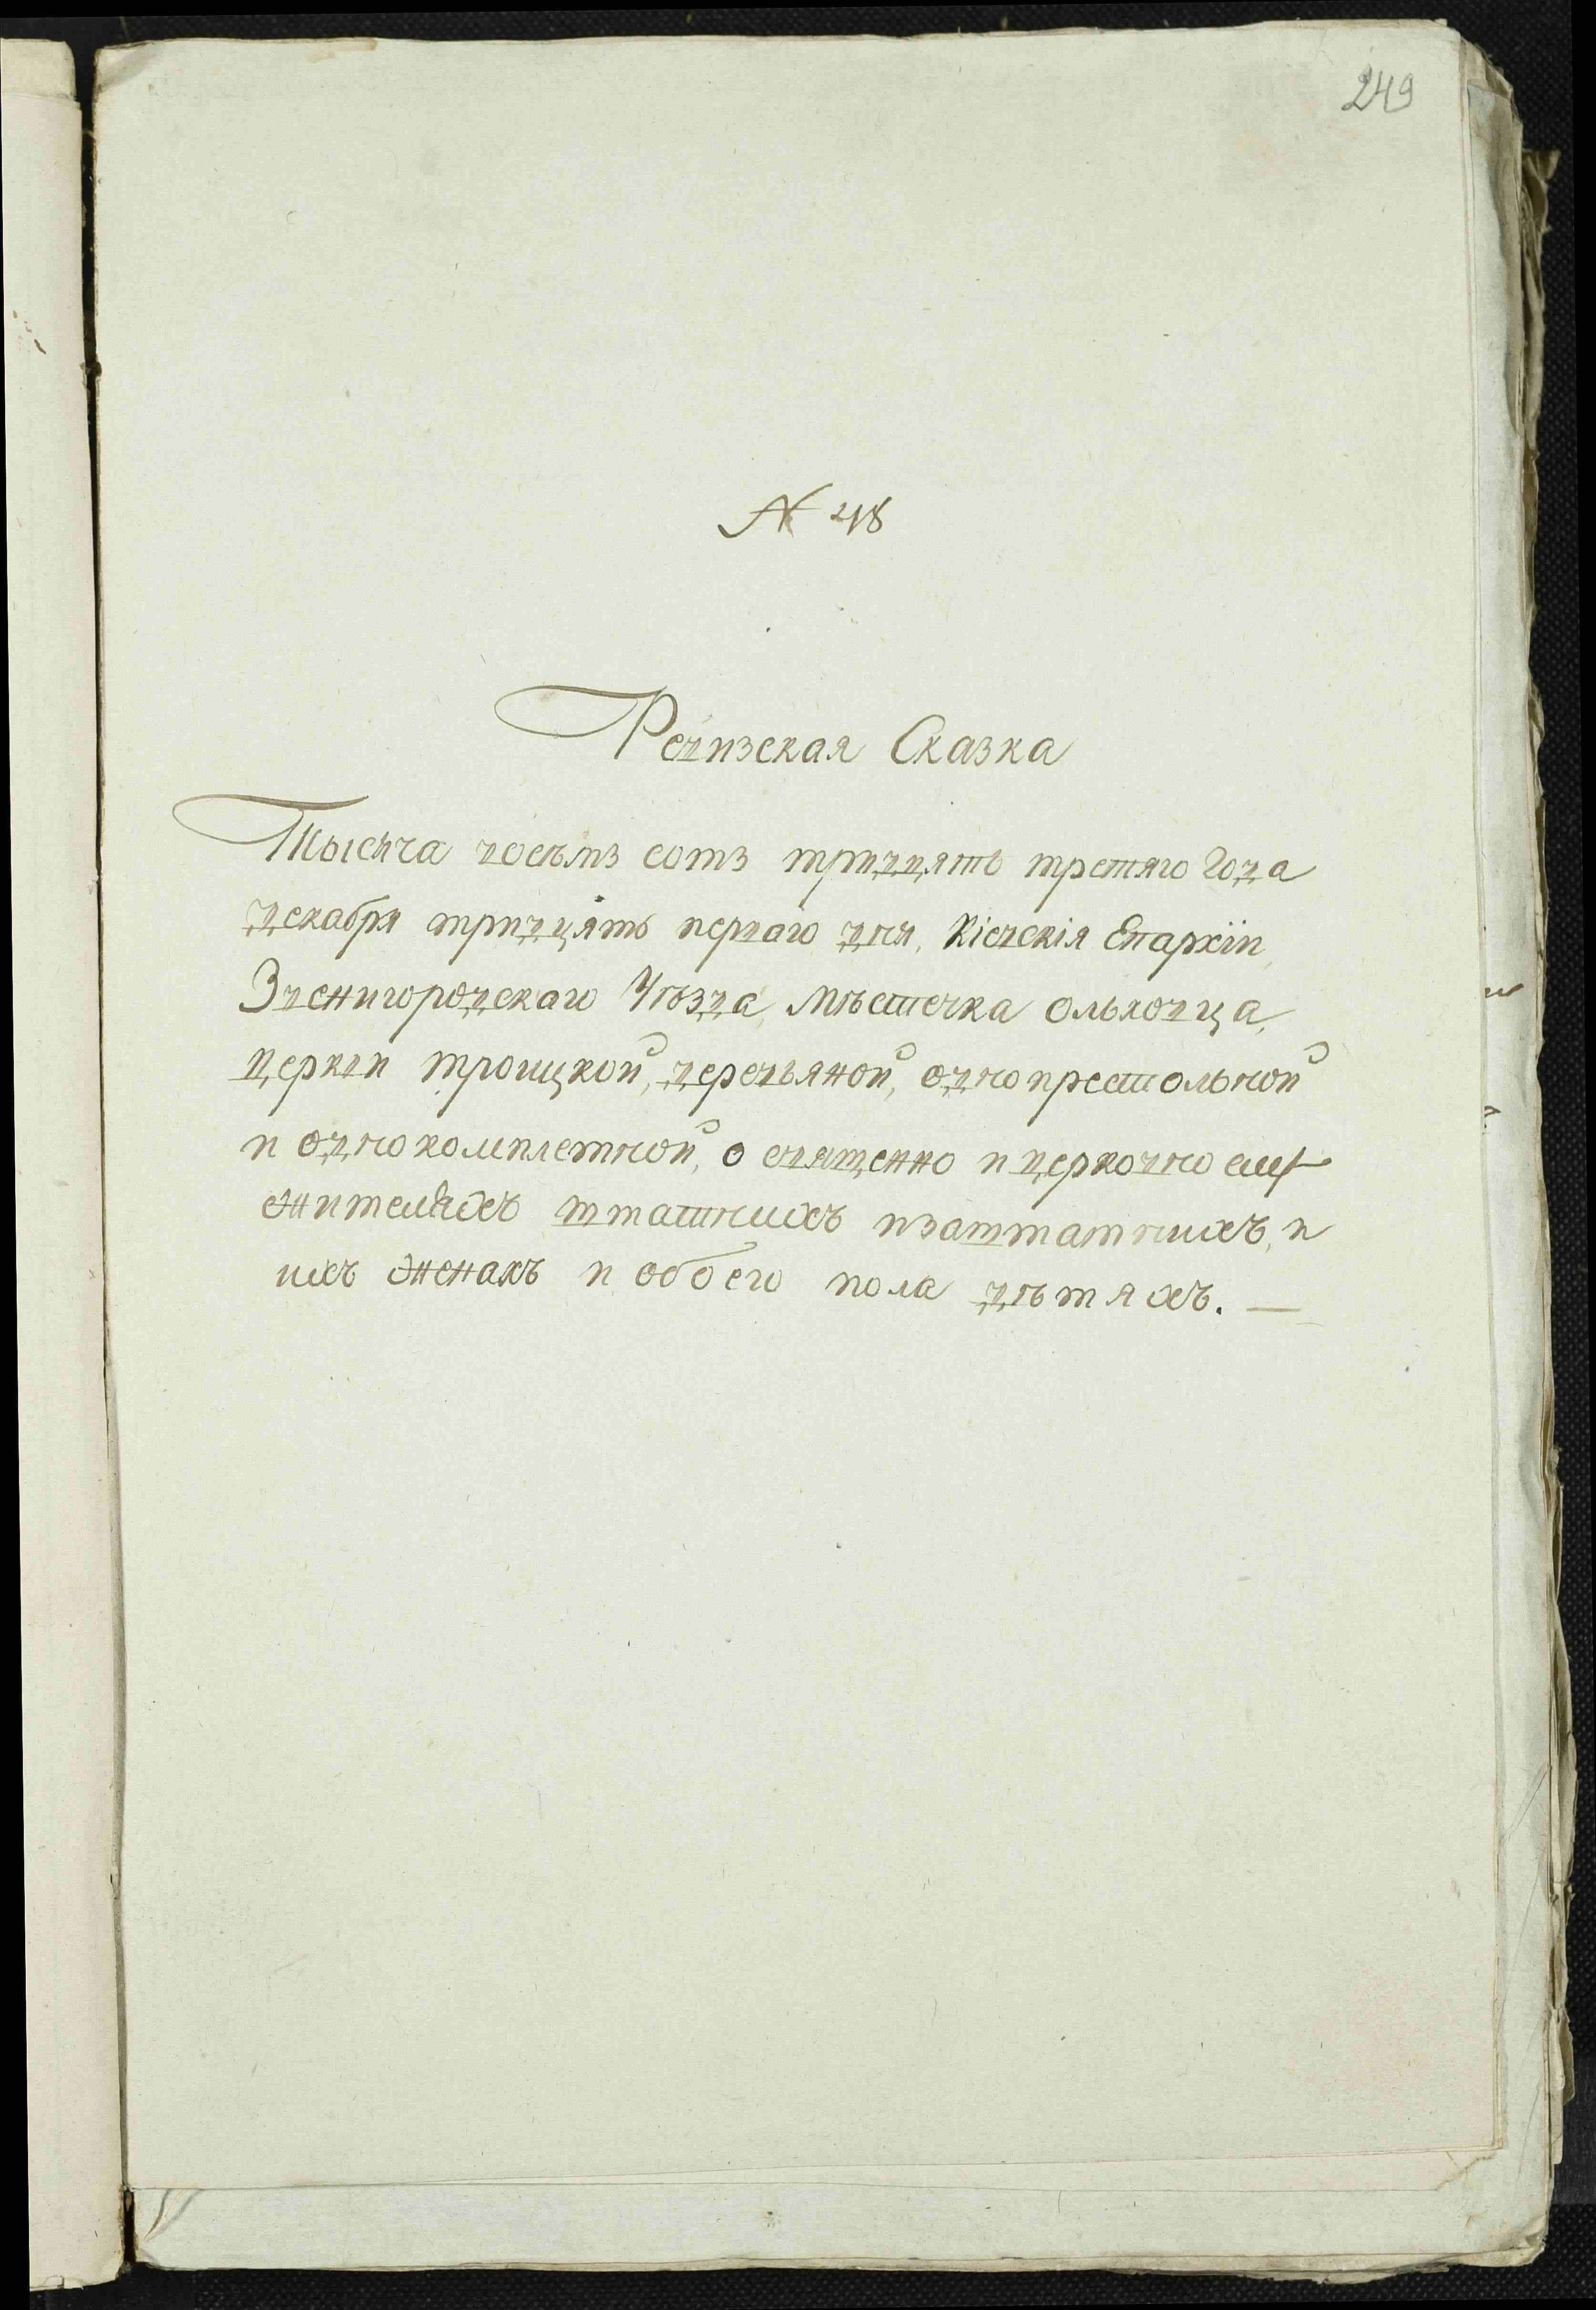 249
№ 48
Ревизская Сказка
Тысяча восемъ сотъ тридцять третяго Года
декабря тридцять перваго дня, Кіевскія Епархіи,
Звенигородскаго Уѣзда, Мѣстечка ольховца,
церкви троицкой, деревьяной, однопрестольной
и однокомплетной, о священно и церковно слу
жителяхъ штатнихъ изаштатнихъ, и
ихъ женахъ и обоего пола дѣтяхъ. —